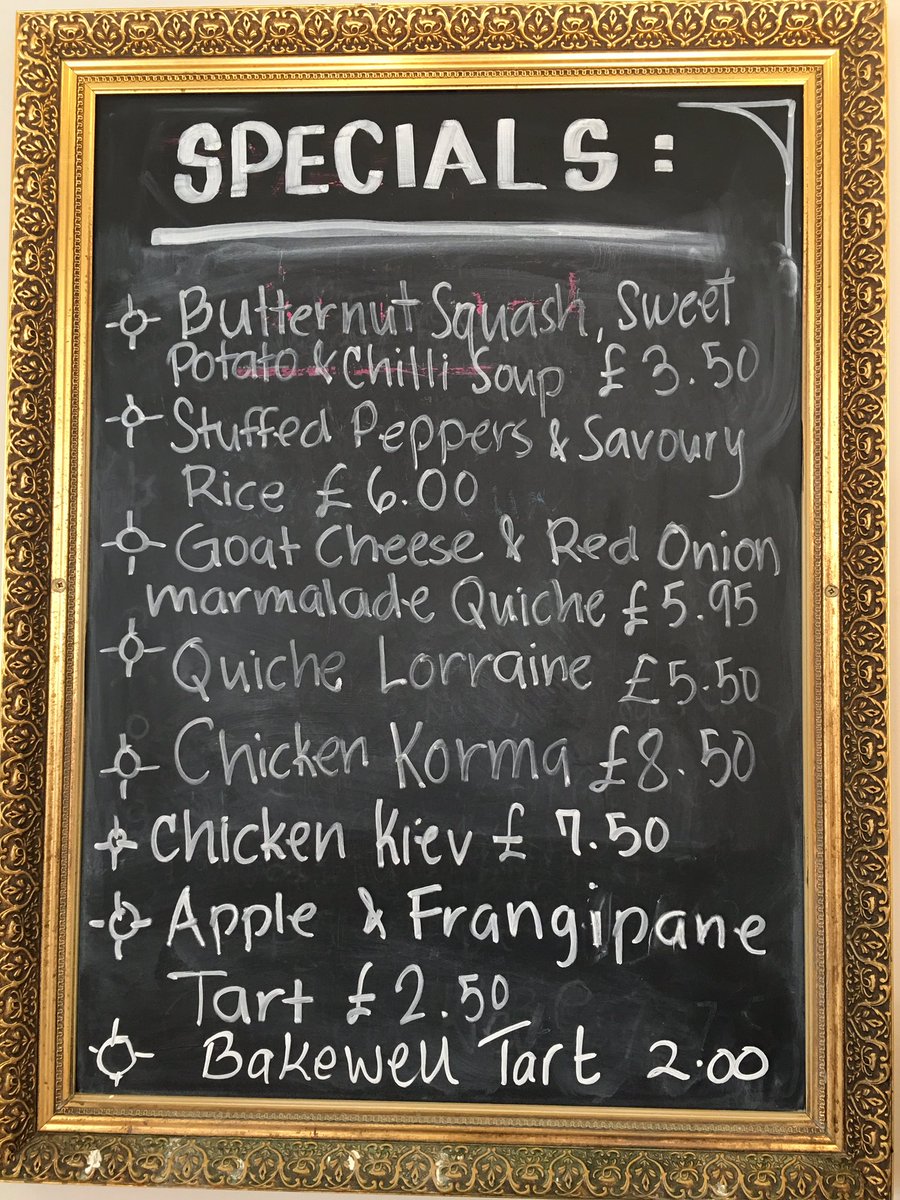 SPECIALS:
Butternut Squash, Sweet
Potato & Chilli Soup £3.50
Stuffed Peppers & Savoury
Rice £6.00
Goat Cheese & Red Onion
marmalade Quiche £5.95
Quiche Lorraine £5.50
Chicken Korma £8.50
Chicken Kiev £7.50
Apple & Frangipane
Tart £2.50
Bakewell Tart 2.00